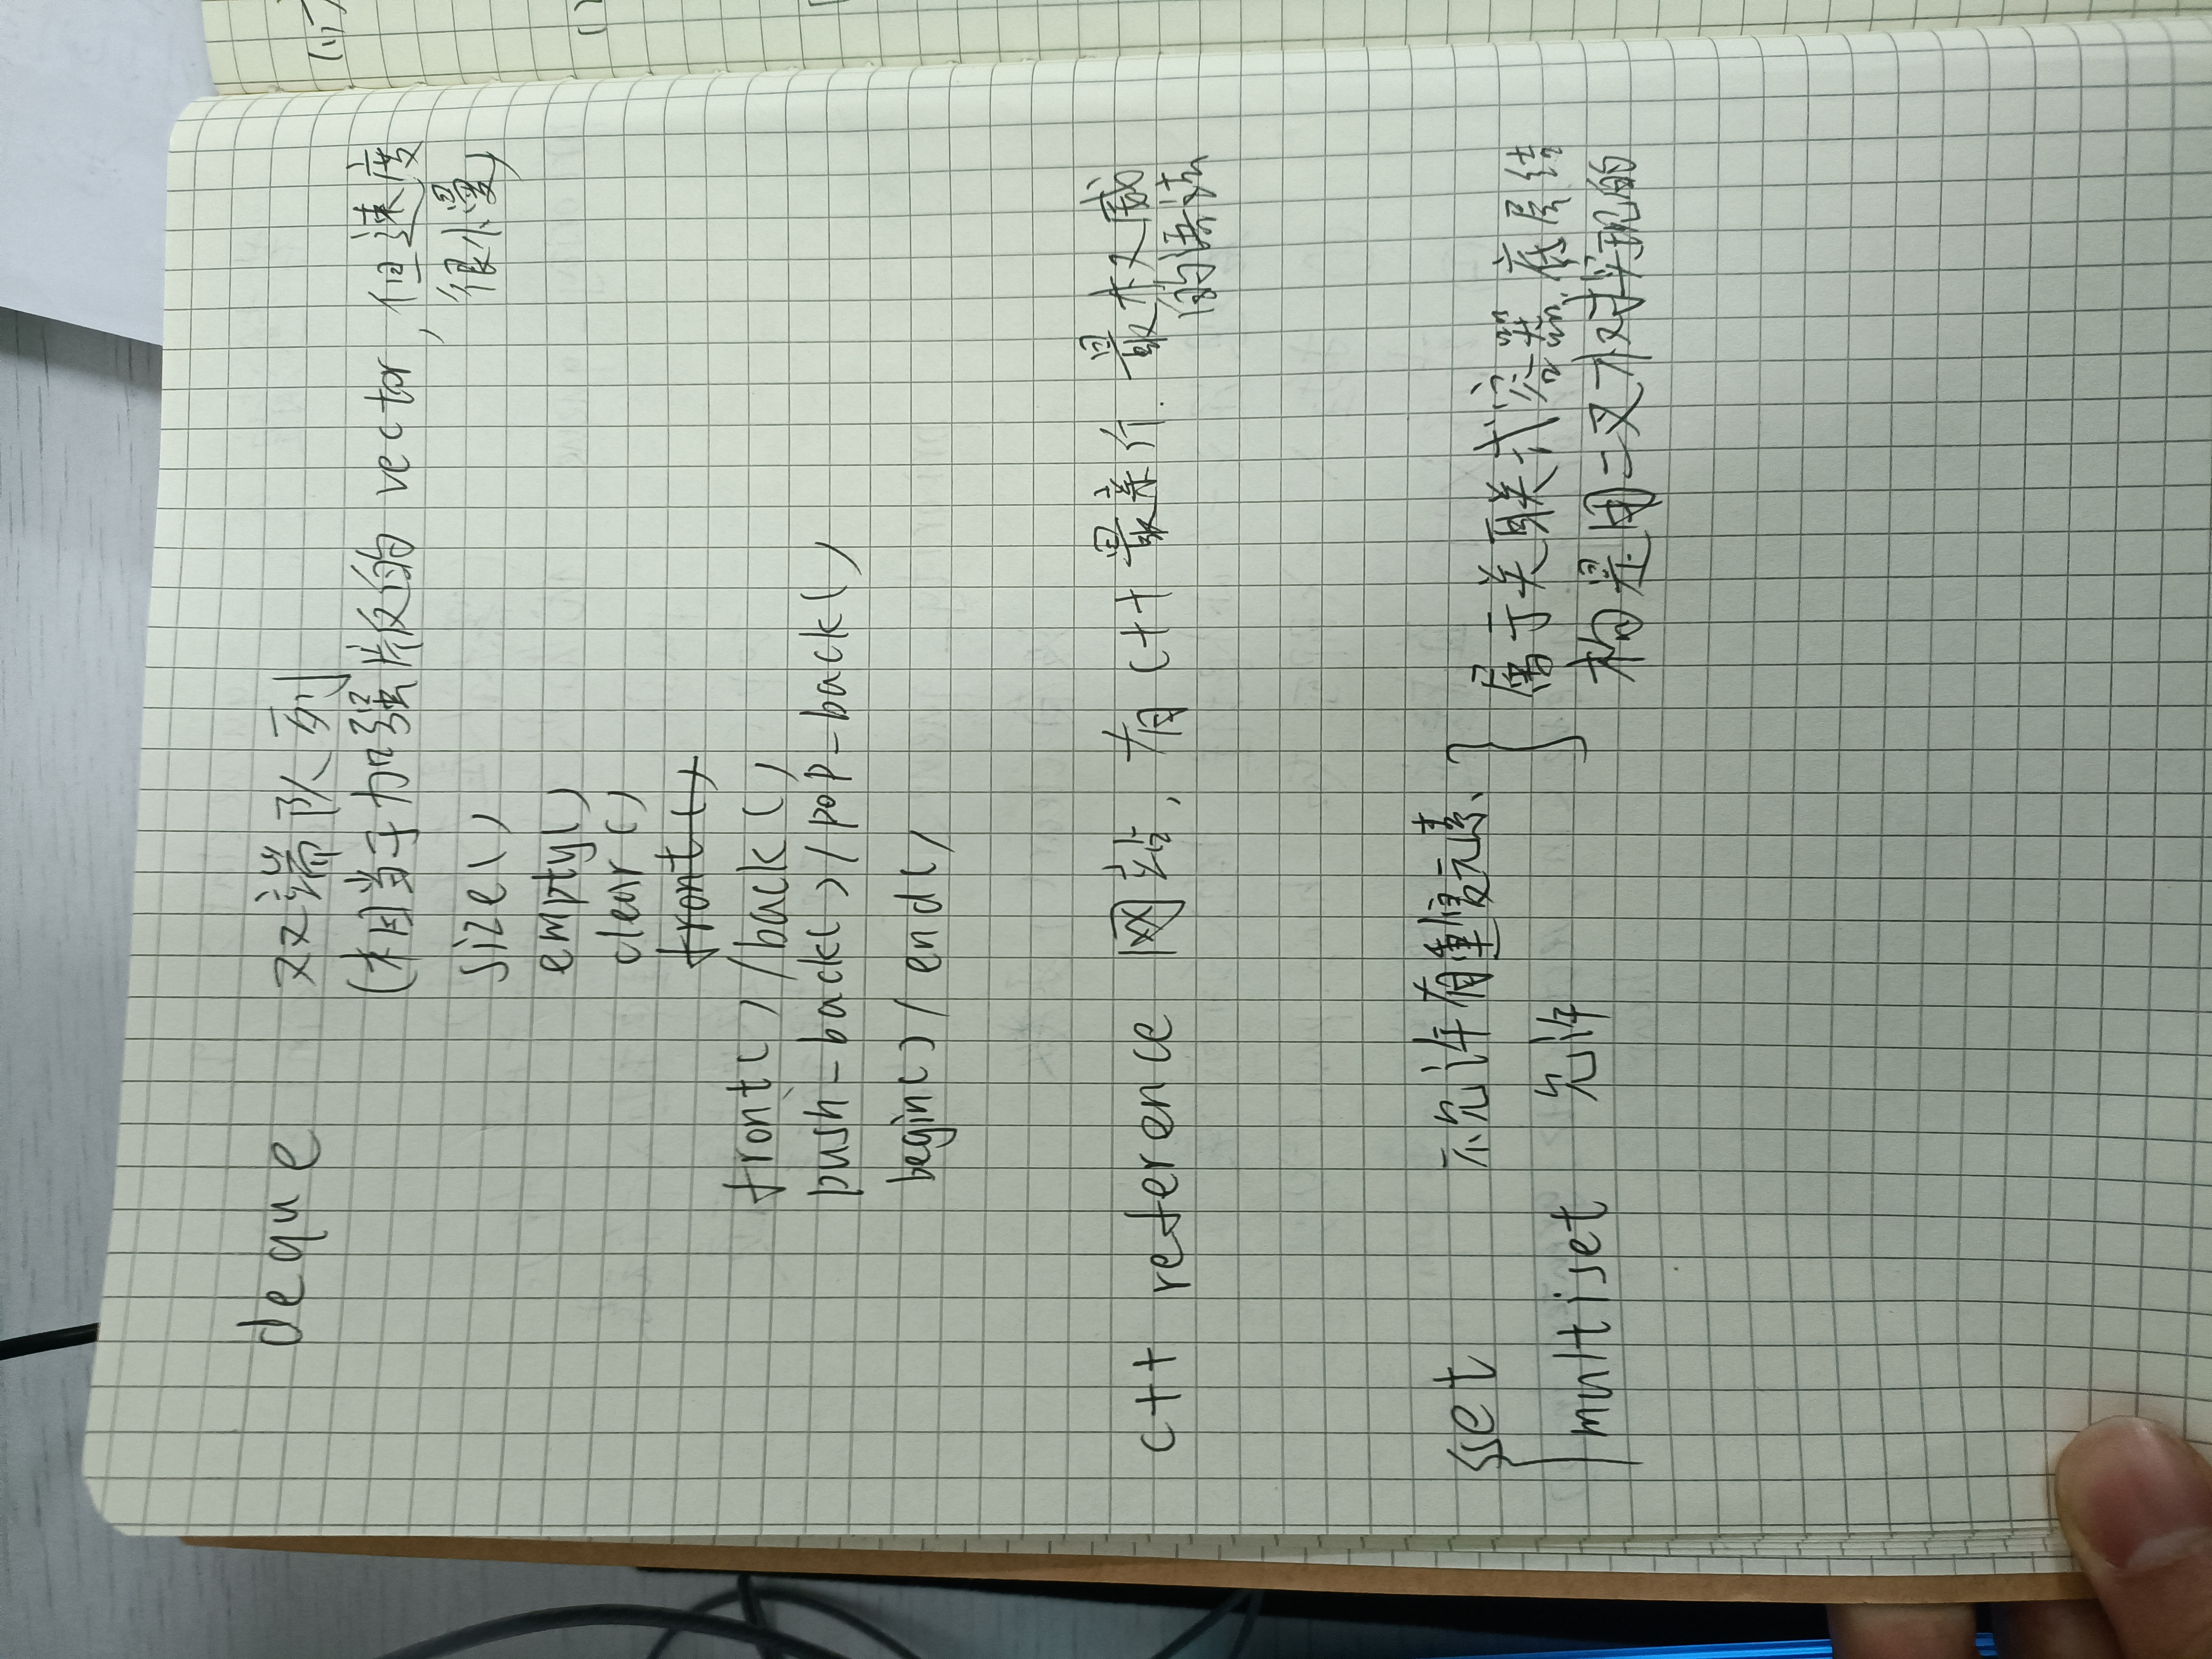 deque 双端队列
(相当于加强版的 vector, 但速度
很慢)
size()
empty()
clear()
front()
front() / back()
push-back() / pop-back()
begin() / end()
c++ reference 网站, 有 C++ 最亲斤. 最权威
的语法
set 不允许有重复元素、
multiset 允许
属于关联式容器, 底层结
构是用二叉树实现的